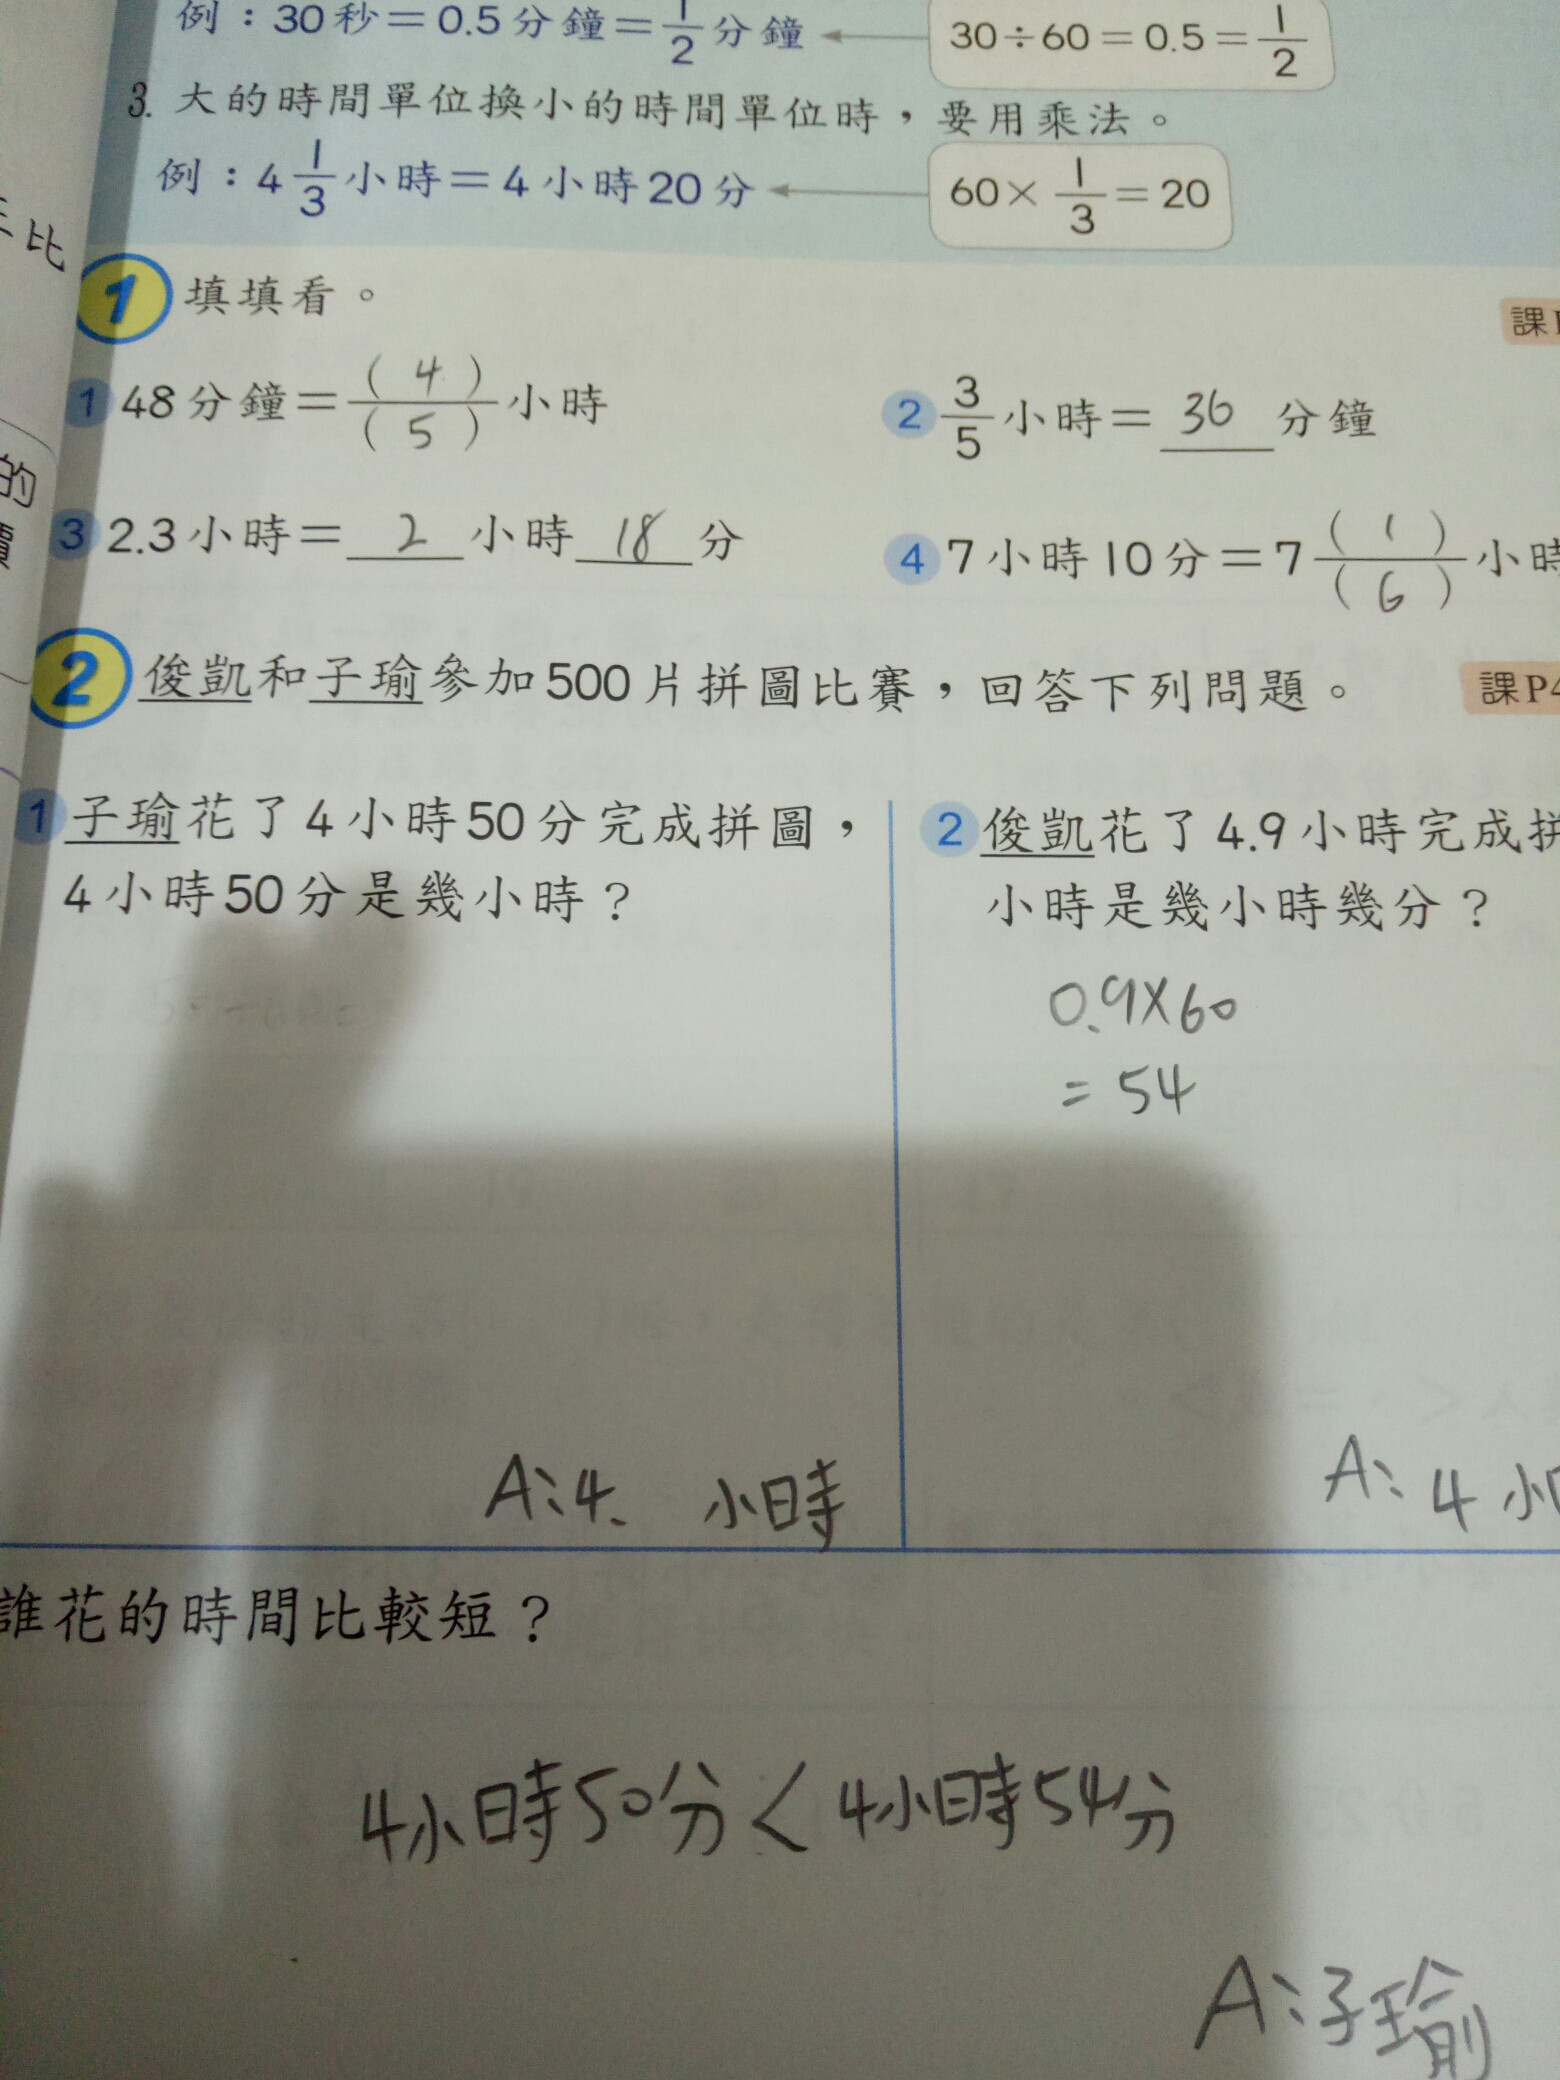 例：30秒＝0.5分鐘＝1/2分鐘 30÷60＝0.5＝1/2
3. 大的時間單位換小的時間單位時，要用乘法。
例：4 1/3小時＝4小時20分 60×1/3＝20
比
1 填填看。
課
1 48分鐘＝(4)/(5)小時
2 3/5小時＝36分鐘
的
3 2.3小時＝2小時18分
4 7小時10分＝7(1)/(6)小時
2 俊凱和子瑜參加500片拼圖比賽，回答下列問題。
課P4
1 子瑜花了4小時50分完成拼圖，
4小時50分是幾小時？
2 俊凱花了4.9小時完成拼
小時是幾小時幾分？
0.9×60
=54
A:4. 小時
A:4小
誰花的時間比較短？
4小時50分<4小時54分
A:子瑜